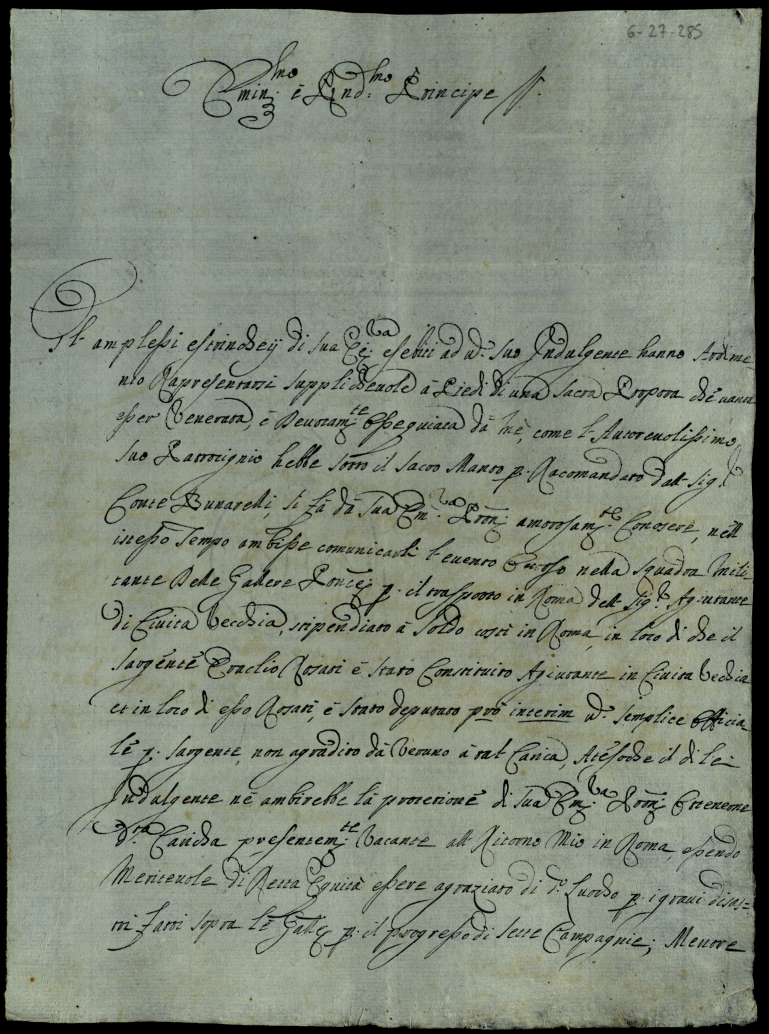 6-27-285
Emin.mo è Rnd.mo Principe
Gl' amplessi estrincheij di sua Em.za esebiti ad un suo Indulgente hanno Ardime-
nto Rapresentarsi supplichevole à Piedi di una Sacra Propora che
esser Venerata, è Devotam.te Osseguiata dà mè, come l'Autorevolissimo
suo Patrocignio hebbe sotto il sacro Manto p. Racomandato dall Sig.r
Conte Bunarelli, si fà dà sua Em.za Pron.e amorosam.te Conoscere, nell
istesso Tempo ambisse comunicarli l'evento occorso nella squadra mili-
tante Delle Galere Ponce p. il trasporto in Roma dell Sig.r Agiutante
di Civita Vecchia, stipendiato à Soldo costì in Roma, in loco di che il
sargente Eraclio Rosari è stato Constituito Agiutante in Civita Vechia
et in loco di esso Rosari, è stato deputato pro interim un semplice officia-
le p. sargente, non agradito dà veruno à tal Carica, Atesoche il di lei
Indulgente nè ambirebbe là protetione di sua Em.za Pron.e Ottenerne
d.ta Caricha presentem.te Vacante all Ritorno Mio in Roma, essendo
Meritevole di Retta Equità essere agraziato di d.o Luocho p. i gravi disas-
tri fatti sopra lè Gale p. il progresso di sette Campagnie; Mentre